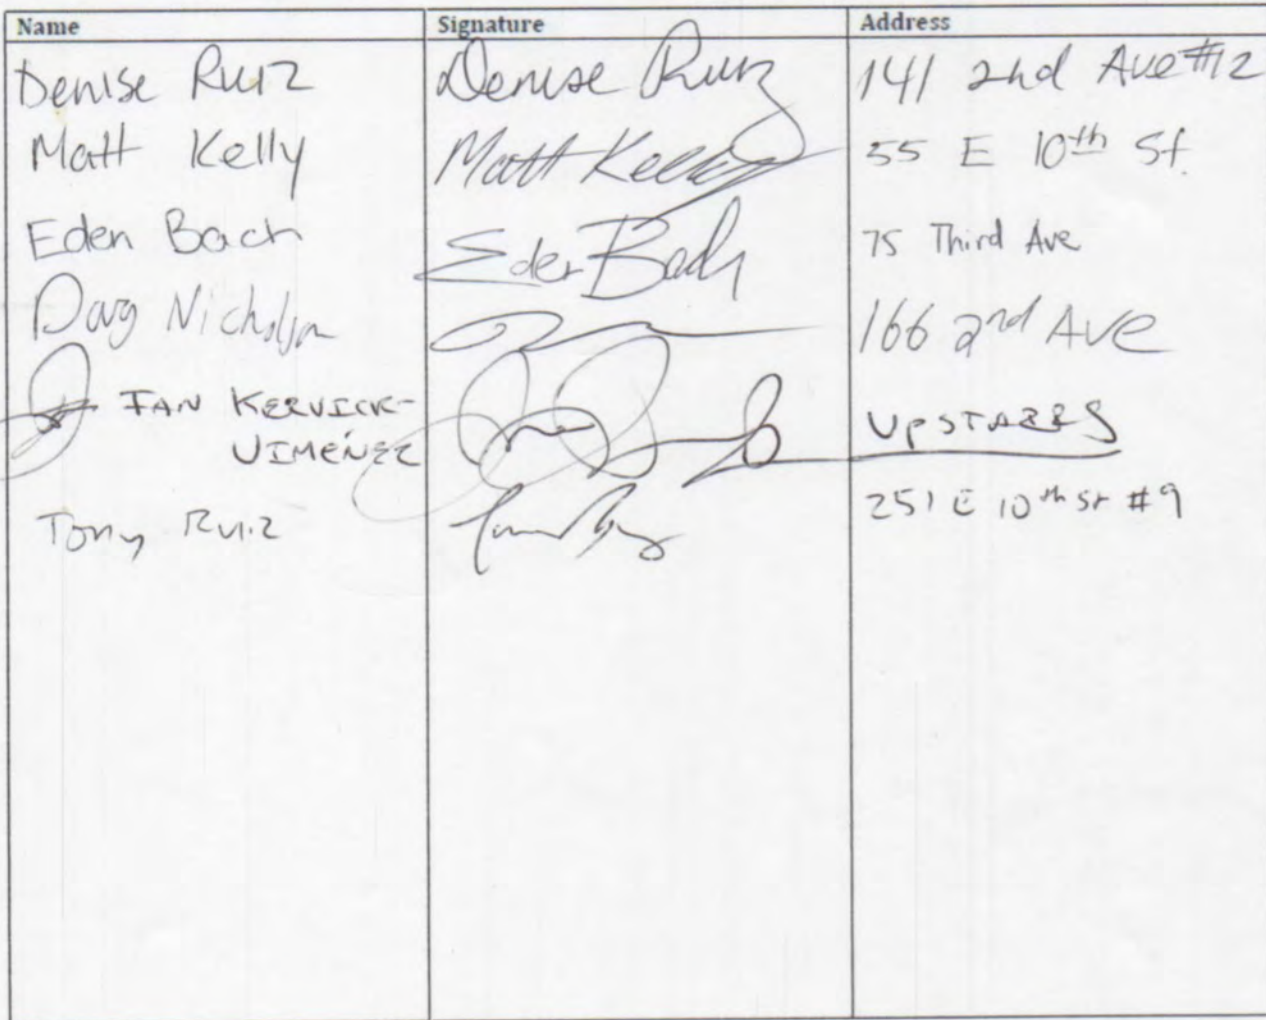 Name Signature Address
Denise Ruiz Denise Ruiz 141 2nd Ave #12
Matt Kelly Matt Kelly 55 E 10th St.
Eden Bach Eden Bach 75 Third Ave
Doug Nicholson 166 2nd Ave
IAN KERVICK- UPSTAIRS
JIMÉNEZ
Tony Ruiz 251 E 10th St #9